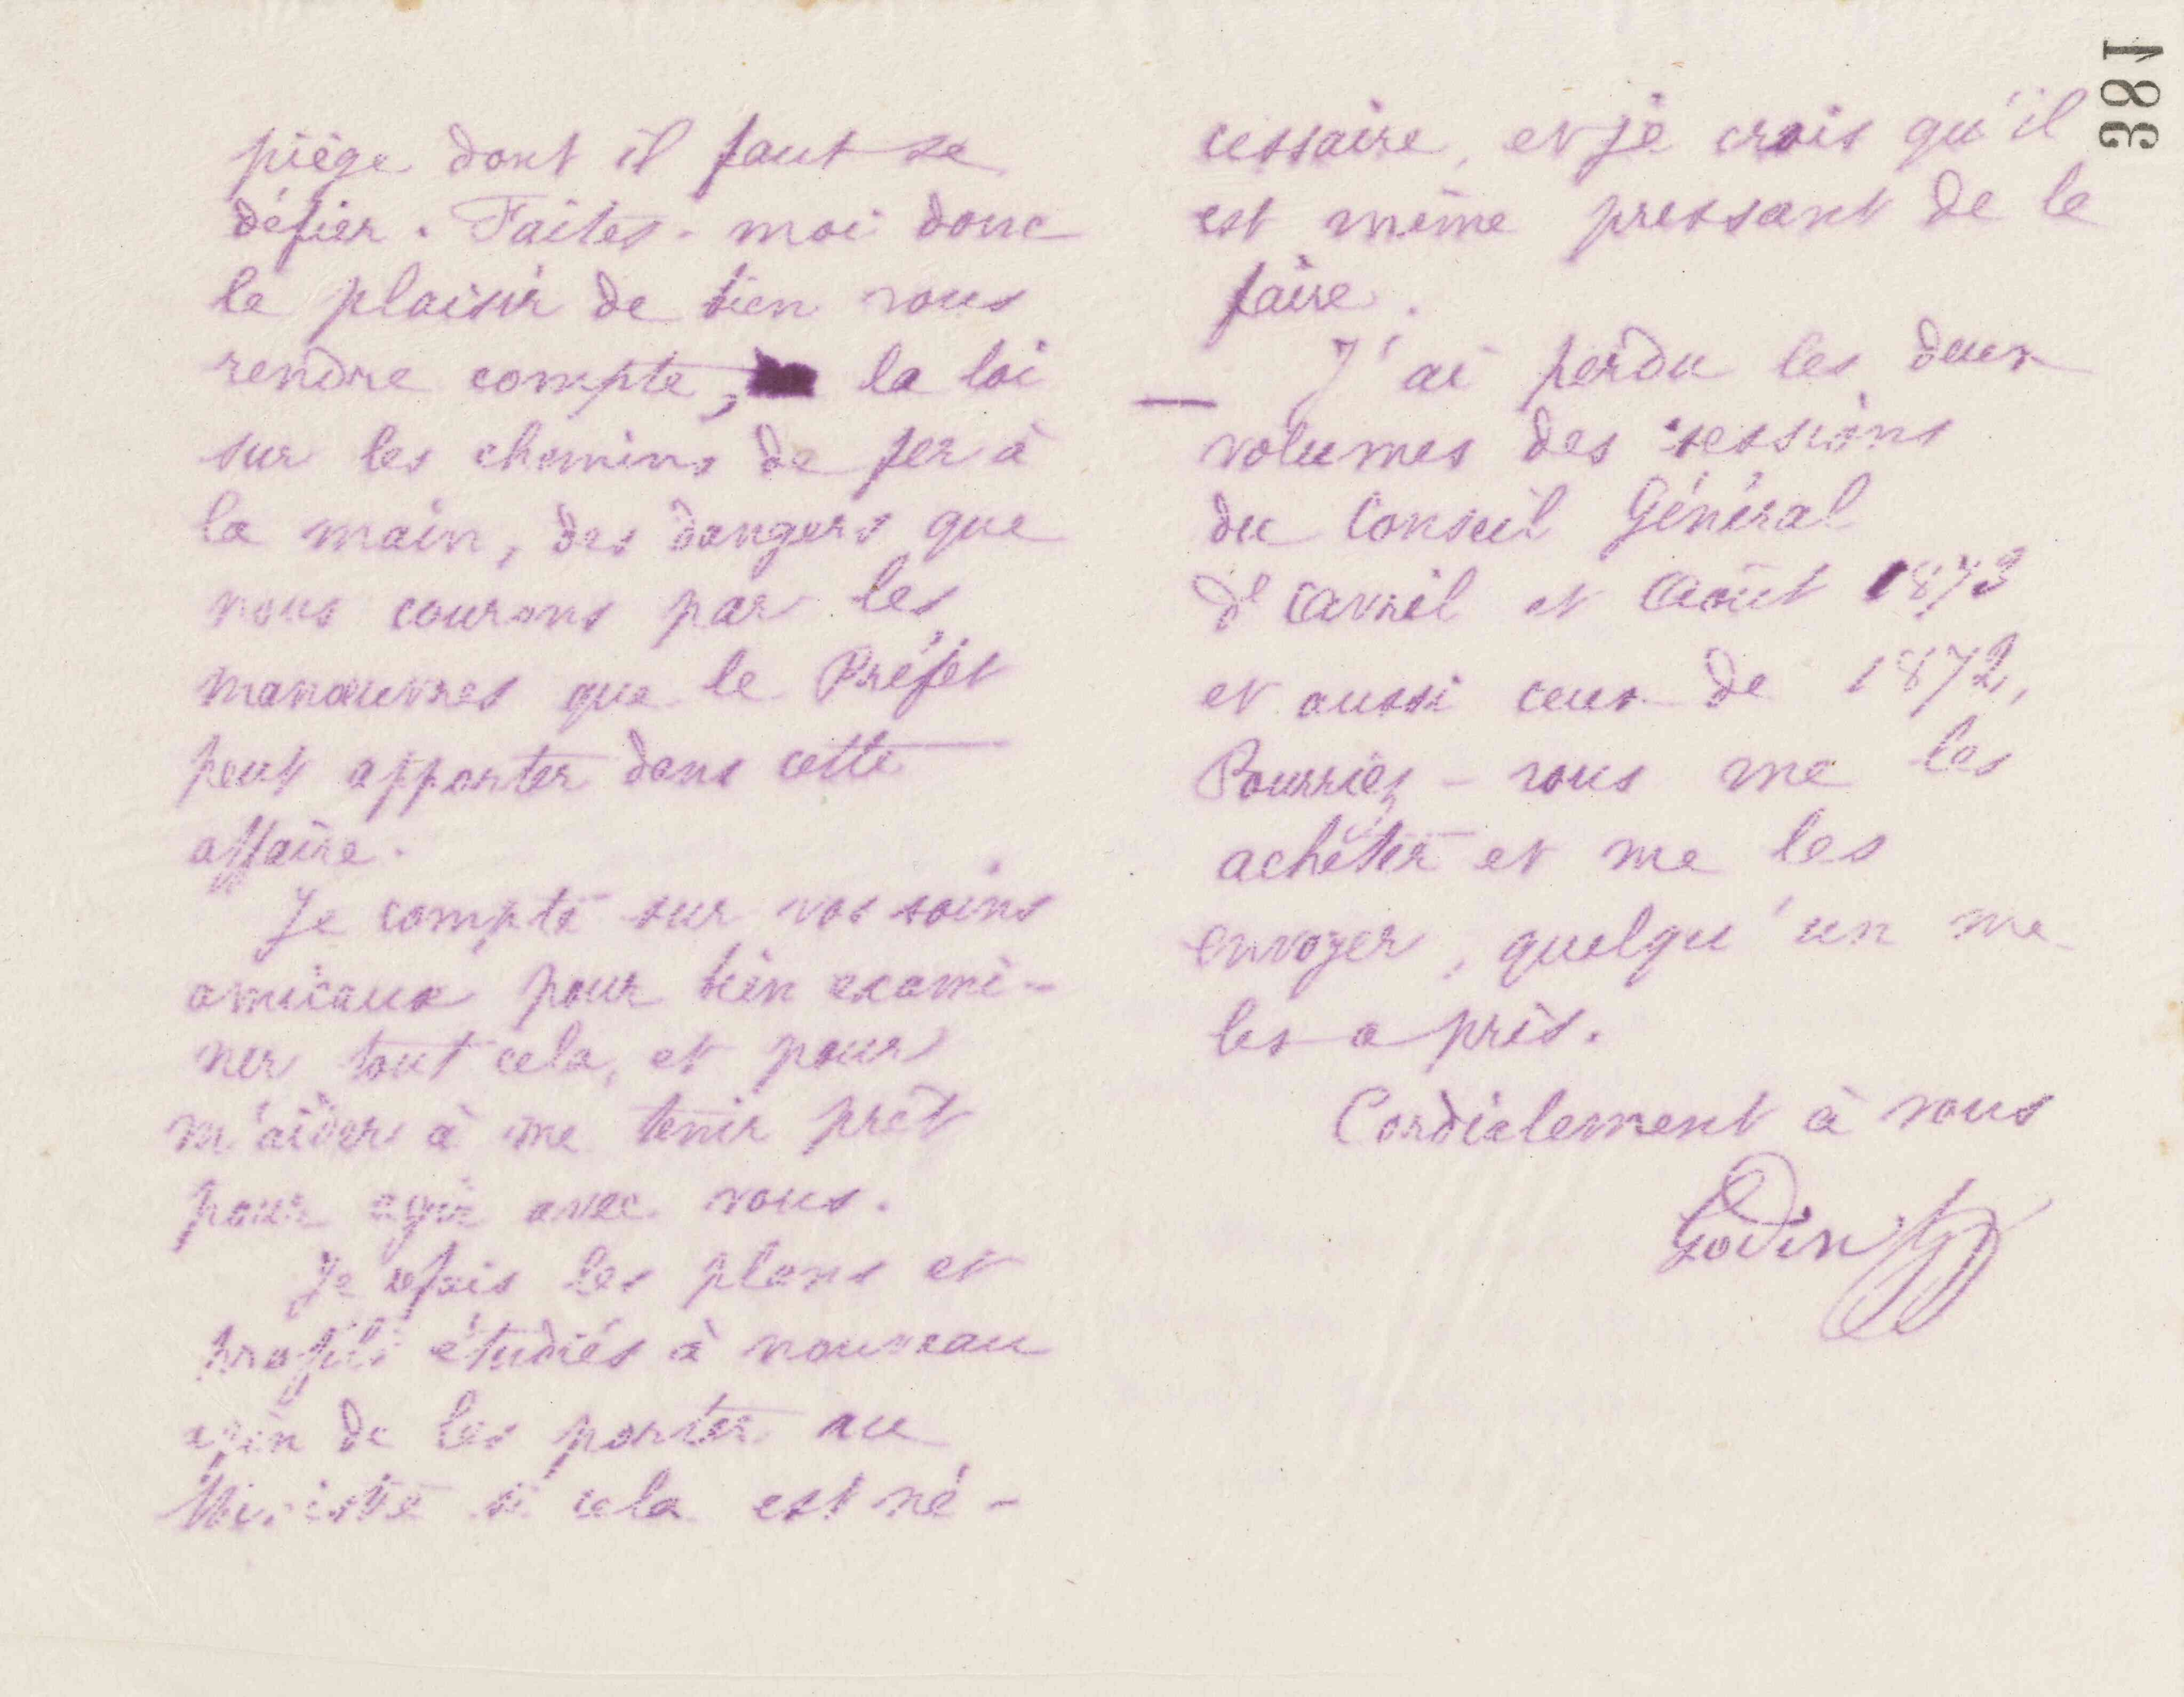 piège dont il faut se
défier. Faites-moi donc
le plaisir de bien vous
rendre compte, la loi
sur les chemins de fer à
la main, des dangers que
nous courons par les
manœuvres que le Préfet
peut apporter dans cette
affaire.
Je compte sur vos soins
amicaux pour bien exami-
ner tout cela, et pour
m'aider à me tenir prêt
pour agir avec vous.
Je fais les plans et
profils étudiés à nouveau
afin de les porter au
Ministre si cela est né-
cessaire, et je crois qu'il
est même pressant de le
faire.
J'ai perdu les deux
volumes des sessions
du Conseil Général
d'Avril et Août 1873
et aussi ceux de 1872,
Pourriez-vous me les
acheter et me les
envoyer, quelqu'un me
les a pris.
Cordialement à vous
Godin
381